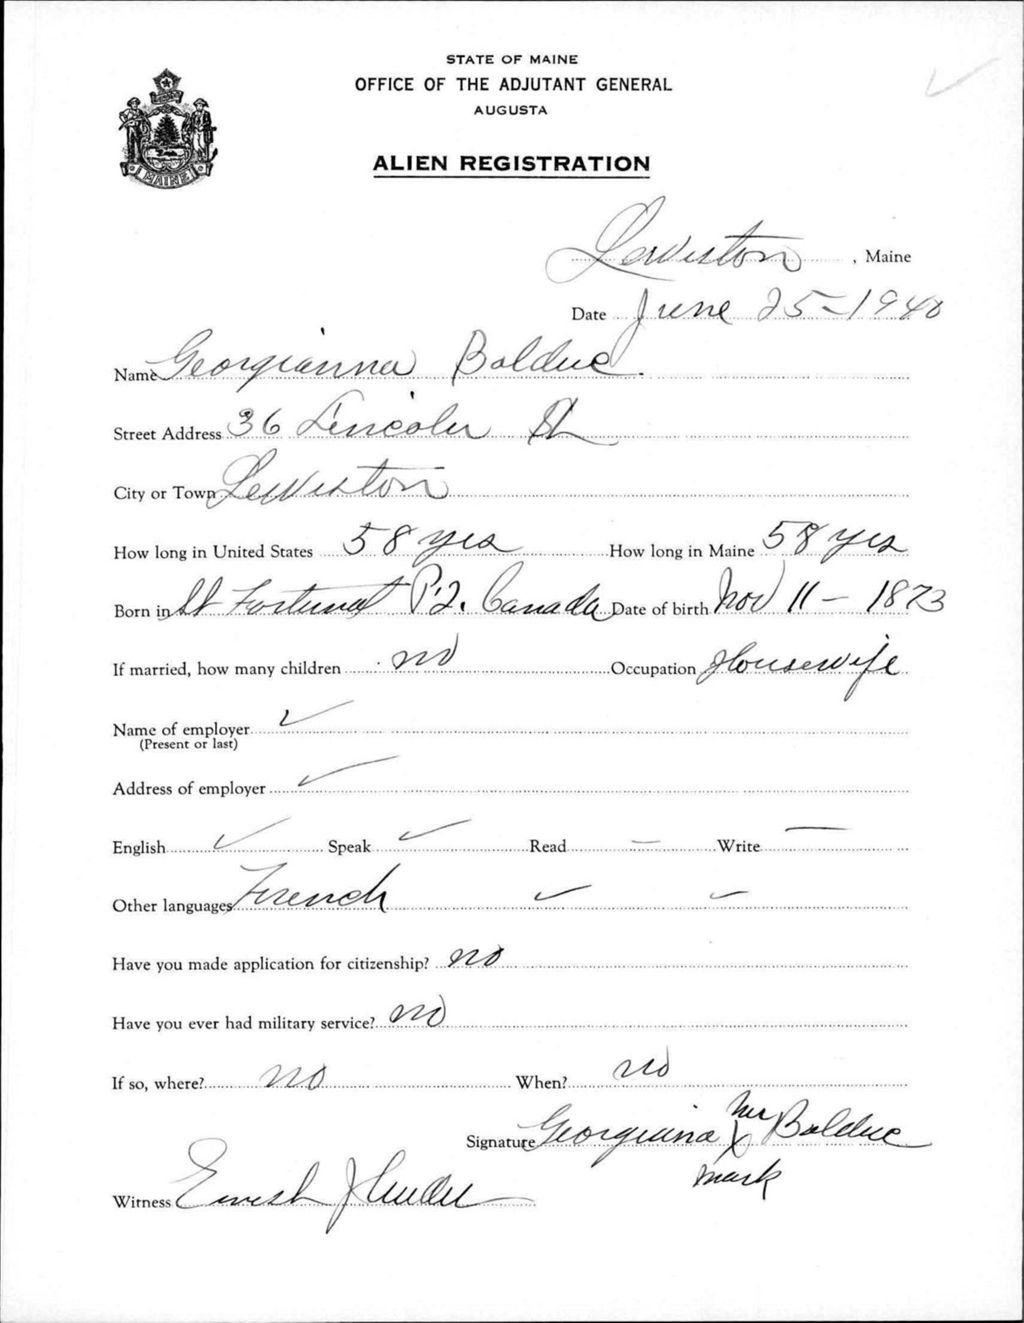 STATE OF MAINE
OFFICE OF THE ADJUTANT GENERAL
AUGUSTA
MAINE
ALIEN REGISTRATION
Lewiston, Maine
Date June 25-1940
Name Georgianna Bolduc
Street Address 36 Lincoln St
City or Town Lewiston
How long in United States 58 yrs How long in Maine 58 yrs
Born in St Fortunat P.Q. Canada Date of birth Nov 11 - 1873
If married, how many children no Occupation Housewife
Name of employer
(Present or last)
Address of employer
English Speak Read Write
Other languages French
Have you made application for citizenship? no
Have you ever had military service? no
If so, where? no When? no
Signature Georgiana X her Bolduc
mark
Witness